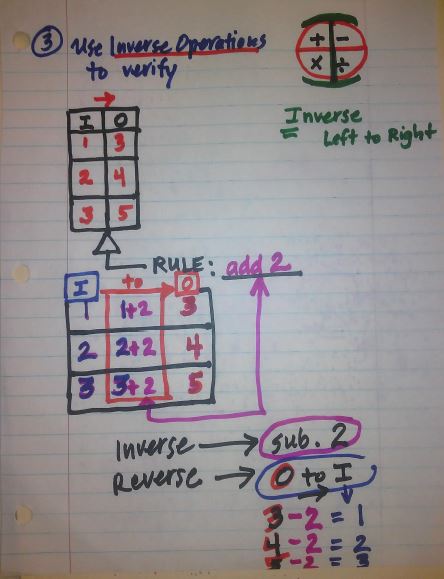 3 Use Inverse Operations
to verify
+ -
× ÷
Inverse
= Left to Right
I O
1 3
2 4
3 5
RULE: add 2
I to O
1 1+2 3
2 2+2 4
3 3+2 5
Inverse → sub. 2
Reverse → O to I
3 - 2 = 1
4 - 2 = 2
5 - 2 = 3